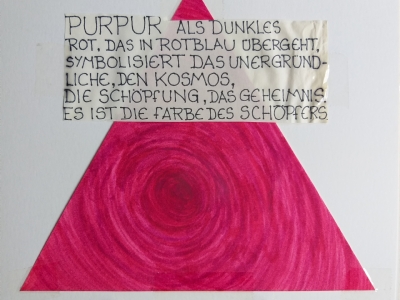 PURPUR ALS DUNKLES
ROT, DAS IN ROTBLAU ÜBERGEHT,
SYMBOLISIERT DAS UNERGRÜND-
LICHE, DEN KOSMOS,
DIE SCHÖPFUNG, DAS GEHEIMNIS.
ES IST DIE FARBE DES SCHÖPFERS